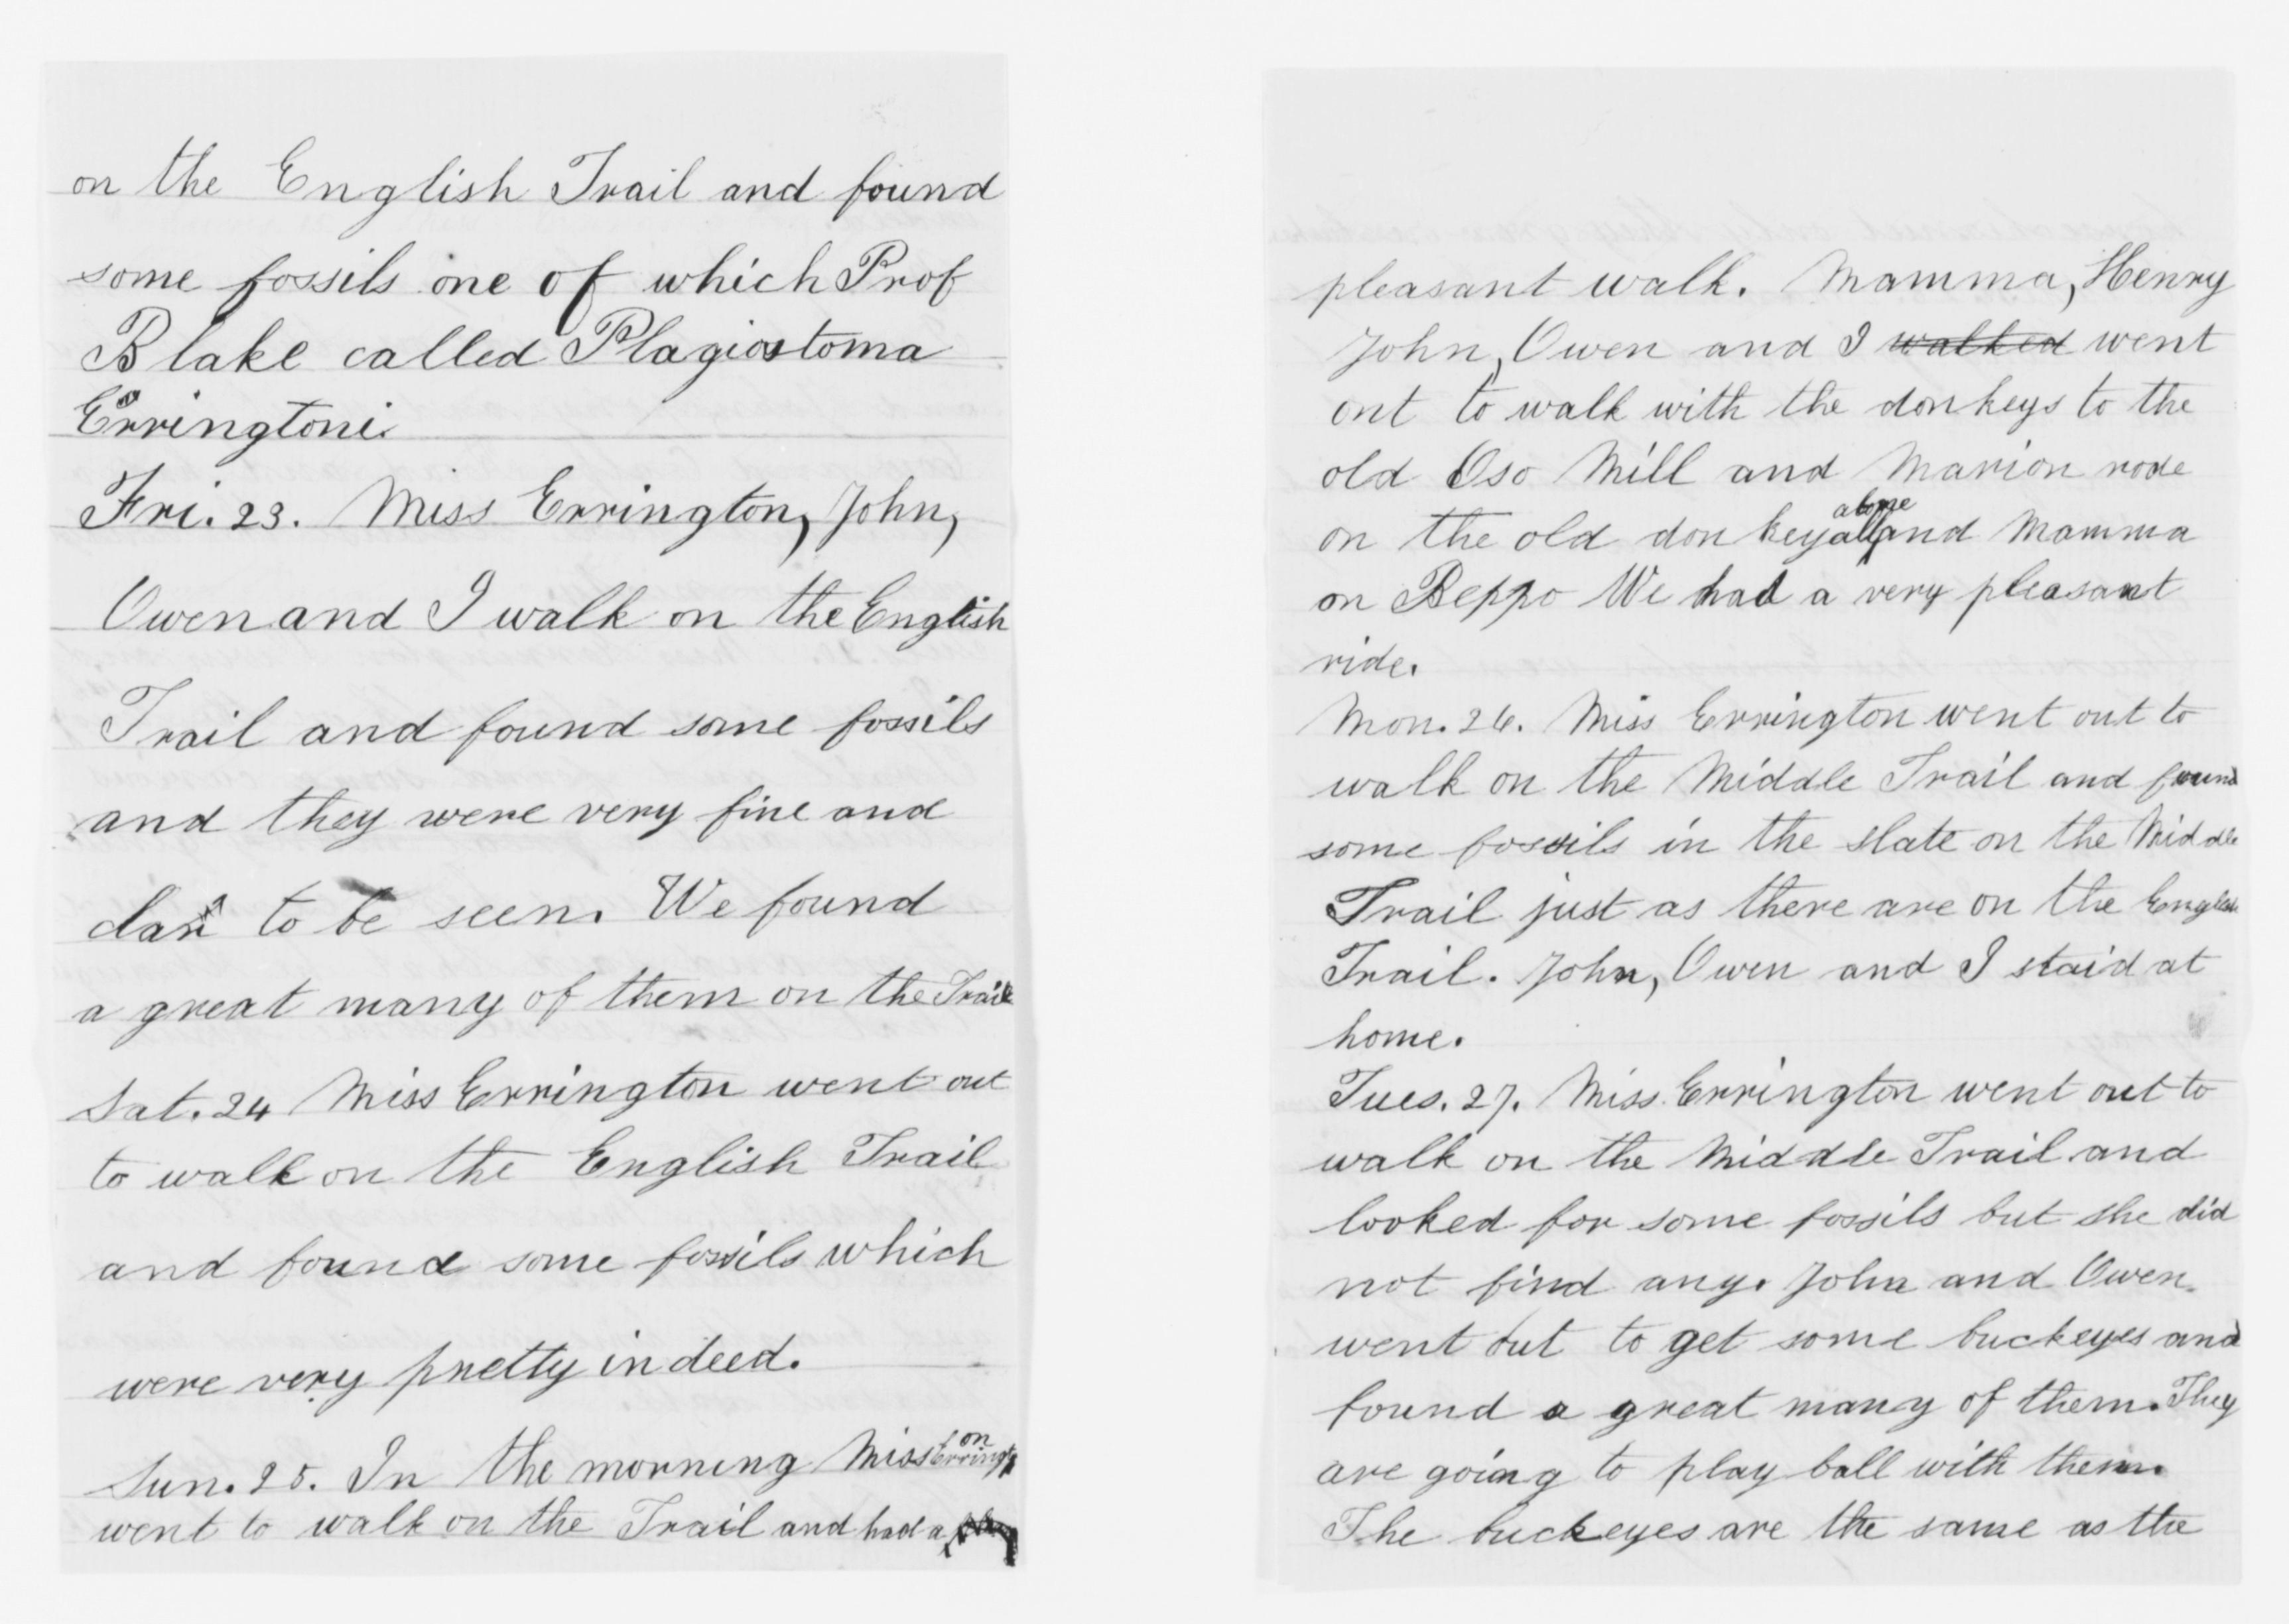 on the English Trail and found
some fossils one of which Prof
Blake called Plagiostoma
Erringtoni.
Fri. 23. Miss Errington, John,
Owen and I walk on the English
Trail and found some fossils
and they were very fine and
to be seen. We found
a great many of them on the Trail
Sat. 24 Miss Errington went out
to walk on the English Trail
and found some fossils which
were very pretty indeed.
Sun. 25. In the morning Miss Errington
went to walk on the Trail and had a
pleasant walk. Mamma, Henry
John, Owen and I walked went
out to walk with the donkeys to the
old Oso Mill and Marion rode
on the old donkey all alone and Mamma
on Beppo We had a very pleasant
ride.
Mon. 26. Miss Errington went out to
walk on the Middle Trail and found
some fossils in the slate on the Middle
Trail just as there are on the English
Trail. John, Owen and I staid at
home.
Tues. 27. Miss Errington went out to
walk on the Middle Trail and
looked for some fossils but she did
not find any. John and Owen
went out to get some buckeyes and
found a great many of them. They
are going to play ball with them.
The buckeyes are the same as the